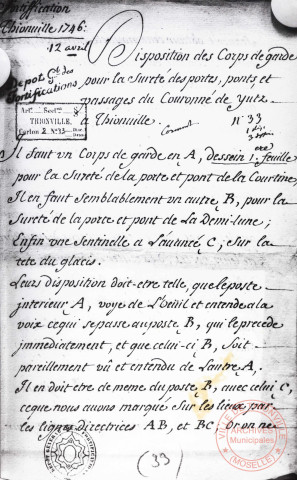 Fortification
Thionville 1746.
12 avril
Disposition des Corps de garde
Depot Gl des
fortifications
pour la Sureté des portes, ponts et
passages du Couronné de yutz
à Thionville.
N° 33
Art. Sect. 8
THIONVILLE,
Carton 2 N° 33
Il faut un Corps de garde en A, dessein 1. feuille
pour la Sureté de la porte et pont de la Courtine,
Il en faut Semblablement un autre B, pour la
Sureté de la porte et pont de La Demi-lune;
Enfin une Sentinelle a L'avancé C, Sur la
tete du glacis.
Leurs disposition doit-etre telle, que le poste
interieur A, voye de L'œüil et entende a la
voix ce qui se passe au poste B, qui le precede
immediatement, et que celui-ci B, Soit
pareillement vû et entendu de L'autre A.
Il en doit etre de meme du poste B, avec celui C,
ce que nous avons marqué Sur les lieux par
les lignes directrices AB, et BC. Or on ne
ARCHIVES
Municipales
(MOSELLE)
(33)